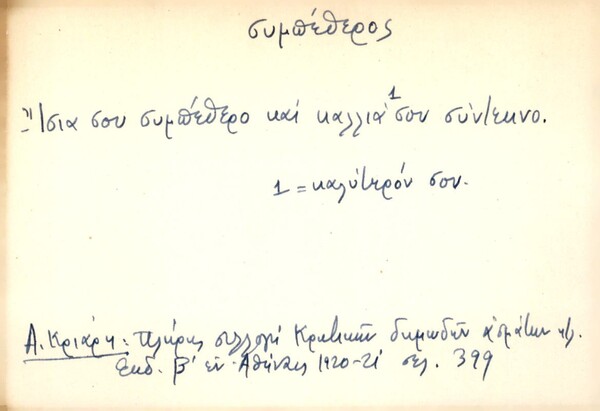 συμπέθερος
Ἴσια σου συμπέθερο καί καλλιά¹ σου σύντεκνο.
1 = καλύτερόν σου.
Α. Κριάρη: Πλήρης συλλογή Κρητικῶν δημωδῶν ᾀσμάτων κλ.
Ἐκδ. Β' ἐν Ἀθήναις 1920-21 σελ. 399